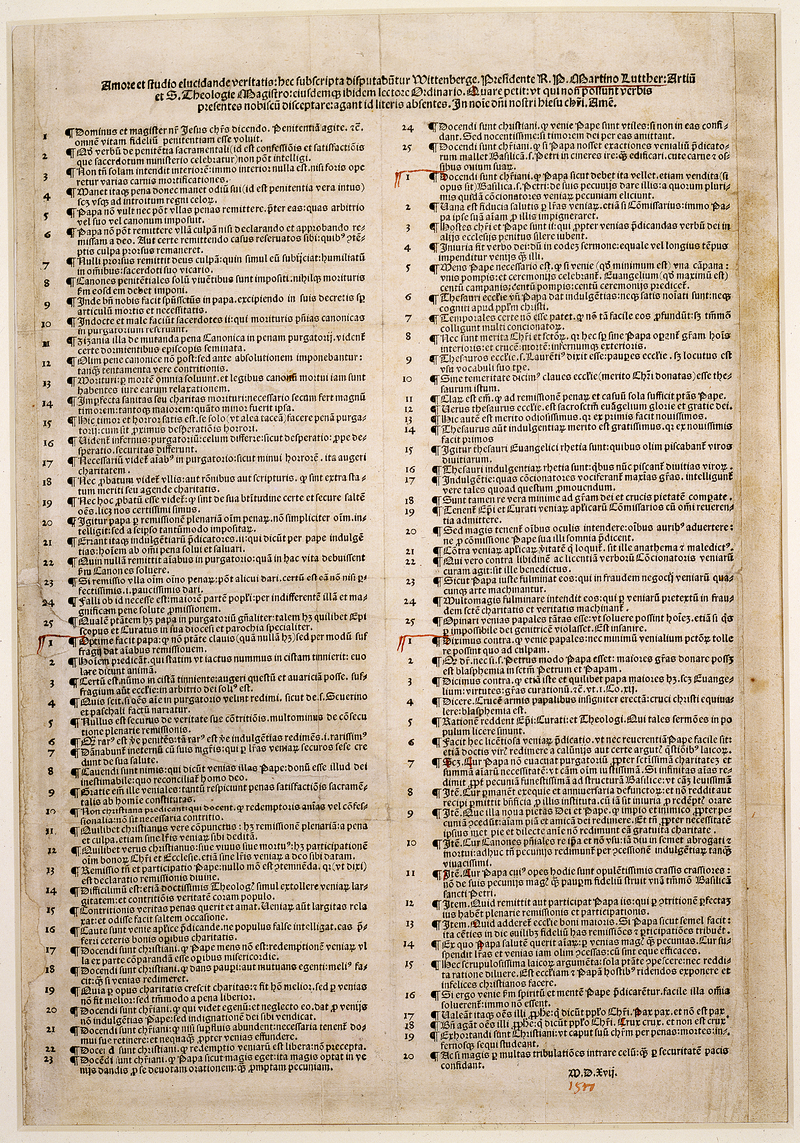 Amore et studio elucidande veritatis: hec subscripta disputabũtur Wittenberge. Presidente R. P. Martino Lutther: Artiũ
et S. Theologie Magistro: eiusdemq̃ ibidem lectore Ordinario. Quare petit: vt qui non possunt verbis
presentes nobiscũ disceptare: agant id literis absentes. In noĩe dñi nostri hiesu chr̃i. Amẽ.
1 ¶Dominus et magister nr̃ Jesus chr̃s dicendo. Penitentiã agite. ⁊c̃.
omnẽ vitam fidelium penitentiam esse voluit.
2 ¶Qđ verbũ de penitẽtia sacramentali (id est confessiõis et satisfactiõis
que sacerdotum ministerio celebratur) non põt intelligi.
3 ¶Non tñ solam intendit interiorẽ: immo interior nulla est. nisi foris ope
retur varias carnis mortificationes.
4 ¶Manet itaq̃ pena donec manet odiũ sui (id est penitentia vera intus)
scʒ vsq̃ ad introitum regni celoꝝ.
5 ¶Papa nõ vult nec põt vllas penas remittere. p̃ter eas: quas arbitrio
vel suo vel canonum imposuit.
6 ¶Papa nõ põt remittere vllã culpã nisi declarãdo et approbando re-
missam a deo. Aut certe remittendo casus reseruatos sibi: quibꝰ cõtẽ-
ptis culpa prorsus remaneret.
7 ¶Nulli prorsus remittit deus culpã: quin simul eũ subijciat: humiliatũ
in omnibus: sacerdoti suo vicario.
8 ¶Canones penitẽtiales solũ viuẽtibus sunt impositi. nihilq̃ morituris
ẽm eosdem debet imponi.
9 ¶Inde bñ nobis facit spũssctũs in papa. excipiendo in suis decretis sp̃
articulũ mortis et necessitatis.
10 ¶Indocte et male faciũt sacerdotes ii: qui morituris pñias canonicas
in purgatorium reseruant.
11 ¶Zizania illa de mutanda pena Canonica in penam purgatorij. vident̃
certe dormientibus episcopis seminata.
12 ¶Olim pene canonice nõ post: sed ante absolutionem imponebantur:
tanq̃ tentamenta vere contritionis.
13 ¶Morituri: p mortẽ omnia soluunt. et legibus canonũ mortui iam sunt
habentes iure earum relaxationem.
14 ¶Imperfecta sanitas seu charitas morituri: necessario secum fert magnũ
timorem: tantoq̃ maiorem: quãto minor fuerit ipsa.
15 ¶Hic timor et horror: satis est. se solo (vt alia taceã) facere penã purga-
torij: cum sit proximus desperationis horrori.
16 ¶Vident̃ infernus: purgatoriũ: celum differre: sicut desperatio: ꝓpe de-
speratio. securitas differunt.
17 ¶Necessariũ videt̃ aĩabꝰ in purgatorio: sicut minui horrorẽ. ita augeri
charitatem.
18 ¶Nec ꝓbatum videt̃ vllis: aut rõnibus aut scripturis. q̃ sint extra sta-
tum meriti seu agende charitatis.
19 ¶Nec hoc ꝓbatũ esse videt̃: q̃ sint de sua btĩtudine certe et secure saltẽ
oẽs. licʒ nos certissimi simus.
20 ¶Igitur papa p remissionẽ plenariã oĩm penaꝝ. nõ simpliciter oĩm. in-
telligit: sed a seipso tantũmodo impositaꝝ.
21 ¶Errant itaq̃ indulgẽtiarũ p̃dicatores. ii: qui dicũt per pape indulgẽ
tias: hoĩem ab oĩmi pena solui et saluari.
22 ¶Quin nullã remittit aĩabus in purgatorio: quã in hac vita debuissent
ẽm Canones soluere.
23 ¶Si remissio vlla oĩm oĩno penaꝝ: põt alicui dari. certũ est eã nõ nisi p-
fectissimis. i. paucissimis dari.
24 ¶Falli ob id necesse est: maiorẽ partẽ popl̃i: per indifferentẽ illã et ma-
gnificam pene solute ꝓmissionem.
25 ¶Qualẽ ptãtem hʒ papa in purgatoriũ gñaliter: talem hʒ quilibet Epi
scopus et Curatus in sua diocesi et parochia specialiter.
1 ¶Optime facit papa: q̃ nõ ptãte clauis (quã nullã hʒ) sed per modũ suf
fragij dat aĩabus remissionem.
2 ¶Hoĩem p̃dicãt. qui statim vt iactus nummus in cistam tinnierit: euo
lare dicunt animã.
3 ¶Certũ est. nũmo in cistã tinniente: augeri questũ et auariciã posse. suf-
fragium aũt eccl̃ie: in arbitrio dei solꝰ est.
4 ¶Quis scit. si oẽs aĩe in purgatorio velint redimi. sicut de. s. Seuerino
et paschali factũ narratur.
5 ¶Nullus est securus de veritate sue cõtritiõis. multominus de cõsecu
tione plenarie remissionis.
6 ¶Qz̃ rarꝰ est ṽe penitẽs: tã rarꝰ est ṽe indulgẽtias redimẽs. i. rarissimꝰ
7 ¶Dãnabunt̃ ineternũ cũ suis mgr̃is: qui p lr̃as veniaꝝ securos sese cre
dunt de sua salute.
8 ¶Cauendi sunt nimis: qui dicũt venias illas Pape: donũ esse illud dei
inestimabile: quo reconciliat homo deo.
9 ¶Gratie em̃ ille veniales: tantũ respiciunt penas satisfactiõis sacramẽ-
talis ab homine constitutas.
10 ¶Non christiana predicant: qui docent. q̃ redemptoris aĩas vel cõfes-
sionalia: nõ sit necessaria contritio.
11 ¶Quilibet christianus vere cõpunctus: hʒ remissionẽ plenariã: a pena
et culpa. etiam sine lr̃is veniaꝝ sibi debitã.
12 ¶Quilibet verus christianus: siue viuus siue mortuꝰ: hʒ participationẽ
oĩm bonoꝝ Chr̃i et Ecclesie. etiã sine lr̃is veniaꝝ a deo sibi datam.
13 ¶Remissio tñ et participatio Pape: nullo mõ est ꝯtemnẽda. qꝛ (vt dixi)
est declaratio remissionis diuine.
14 ¶Difficilimũ est: etiã doctissimis Theologꝭ simul extollere veniaꝝ lar-
gitatem: et contritiõis veritatẽ coram populo.
15 ¶Contritionis veritas penas querit et amat. Veniaꝝ aũt largitas rela
xat: et odisse facit saltem occasione.
16 ¶Caute sunt venie apl̃ice p̃dicande. ne populus false intelligat. eas p̃-
ferri ceteris bonis opibus charitatis.
17 ¶Docendi sunt christiani. q̃ Pape mens nõ est: redemptionẽ veniaꝝ vl
la ex parte cõparandã esse opibus misericordie.
18 ¶Docendi sunt christiani. q̃ dans paupi: aut mutuans egenti: meliꝰ fa-
cit: q̃ si venias redimeret.
19 ¶Quia p opus charitatis crescit charitas: ⁊ fit hõ melior. sed p venias
nõ fit melior: sed tm̃modo a pena liberior.
20 ¶Docendi sunt christiani. q̃ qui videt egenũ: et neglecto eo. dat p venijs
nõ indulgẽtias Pape: sed indignationẽ dei sibi vendicat.
21 ¶Docendi sunt chr̃iani: q̃ nisi suꝑfluis abundent: necessaria tenent̃ do-
mui sue retinere: et nequaq̃ ꝓpter venias effundere.
22 ¶Docendi sunt christiani. q̃ redemptio veniarũ est libera: nõ p̃cepta.
23 ¶Docẽdi sunt chr̃iani. q̃ Papa sicut magis eget: ita magis optat in ve
nijs dandis ꝓ se deuotam orationem: q̃ ꝓmptam pecuniam.
24 ¶Docendi sunt chr̃stiani. q̃ venie Pape sunt vtiles: si non in eas confi-
dant. Sed nocentissime: si timorem dei per eas amittant.
25 ¶Docendi sunt chr̃iani. q̃ si Papa nosset exactiones venialiũ p̃dicato-
rum mallet Basilicã. s. Petri in cineres ire: q̃ edificari. cute carne ⁊ os-
sibus ouium suaꝝ.
1 ¶Docendi sunt chr̃iani. q̃ Papa sicut debet ita vellet. etiam vendita (si
opus sit) Basilica. s. Petri: de suis pecunijs dare illis: a quorum pluri-
mis quidã cõcionatores veniaꝝ pecuniam eliciunt.
2 ¶Vana est fiducia salutis p lr̃as veniaꝝ. etiã si Cõmissarius: immo Pa-
pa ipse suã aĩam ꝓ illis impigneraret.
3 ¶Hostes chr̃i et Pape sunt ii: qui ꝓpter venias p̃dicandas verbũ dei in
alijs ecclesijs penitus silere iubent.
4 ¶Iniuria fit verbo dei: dũ in eodẽ sermone: equale vel longius tẽpus
impenditur venijs q̃ illi.
5 ¶Mens Pape necessario est. q̃ si venie (qđ minimum est) vna cãpana:
vnis pompis: et ceremonijs celebrant̃. Euangelium (qđ maximũ est)
centũ campanis: centũ pompis: centũ ceremonijs predicet̃.
6 ¶Thesauri eccl̃ie vñ Papa dat indulgẽtias: neq̃ satis noĩati sunt: neq̃
cogniti apud ppl̃m chr̃sti.
7 ¶Temporales certe nõ esse patet. q̃ nõ tã facile eos ꝓfundũt: sʒ tm̃mõ
colligunt multi concionatoꝝ.
8 ¶Nec sunt merita Chr̃i et sctõꝝ. qꝛ hec sp̃ sine Papa oꝑant̃ gr̃am hoĩs
interioris: et crucẽ: mortẽ: infernumq̃ exterioris.
9 ¶Thesauros eccl̃ie. s. Laurẽtiꝰ dixit esse: paupes eccl̃ie. sʒ locutus est
vsu vocabuli suo tꝑe.
10 ¶Sine temeritate dicimꝰ claues eccl̃ie (merito Chr̃i donatas) esse the-
saurum istum.
11 ¶Claꝝ est em̃. q̃ ad remissionẽ penaꝝ et casuũ sola sufficit ptãs Pape.
12 ¶Verus thesaurus eccl̃ie. est sacrosctm̃ euãgelium glorie et gratie dei.
13 ¶Hic autẽ est merito odiosissimus. qꝛ ex primis facit nouissimos.
14 ¶Thesaurus aũt indulgentiaꝝ merito est gratissimus. qꝛ ex nouissimis
facit primos
15 ¶Igitur thesauri Euangelici rhetia sunt: quibus olim piscabant̃ viros
diuitiarum.
16 ¶Thesauri indulgentiaꝝ rhetia sunt: q̃bus nũc piscant̃ diuitias viroꝝ.
17 ¶Indulgẽtie: quas cõcionatores vociferant̃ maxĩas gr̃as. intelligunt̃
vere tales quoad questum ꝓmouendum.
18 ¶Sunt tamen re vera minime ad gr̃am dei et crucis pietatẽ compate.
19 ¶Tenent̃ Epĩ et Curati veniaꝝ apl̃icarũ Cõmissarios cũ oĩmi reueren-
tia admittere.
20 ¶Sed magis tenent̃ oĩbus oculis intendere: oĩbus auribꝰ aduertere:
ne ꝓ cõmissione Pape sua illi somnia p̃dicent.
21 ¶Cõtra veniaꝝ apl̃icaꝝ ṽitatẽ q̃ loquit̃. sit ille anathema ⁊ maledictꝰ.
22 ¶Qui vero contra libidinẽ ac licentiã verborũ Cõcionatoris veniarũ
curam agit: sit ille benedictus.
23 ¶Sicut Papa iuste fulminat eos: qui in fraudem negocij veniarũ qua-
cunq̃ arte machinantur.
24 ¶Multomagis fulminare intendit eos: qui p veniarũ pretextũ in frau-
dem sctẽ charitatis et veritatis machinant̃.
25 ¶Opinari venias papales tãtas esse: vt soluere possint hoĩeʒ. etiã si q̃s
p impossibile dei genitricẽ violasset. Est insanire.
1 ¶Diximus contra. q̃ venie papales: nec minimũ venialium petõꝝ tolle
re possint quo ad culpam.
2 ¶Qđ dr̃. nec si. s. Petrus modo Papa esset: maiores gr̃as donare possʒ
est blasphemia in sctm̃ Petrum et Papam.
3 ¶Dicimus contra. q̃ etiã iste et quilibet papa maiores hʒ. scʒ Euange-
lium: virtutes: gr̃as curationũ. ⁊c̃. vt. i. Co. xij.
4 ¶Dicere. Crucẽ armis papalibus insigniter erectã: cruci christi equiua-
lere: blasphemia est.
5 ¶Rationẽ reddent Epĩ: Curati: et Theologi. Qui tales sermões in po
pulum licere sinunt.
6 ¶Facit hec licẽtiosa veniaꝝ p̃dicatio. vt nec reuerentiã Pape facile sit:
etiã doctis viris redimere a calũnijs aut certe argutꝭ q̃stiõibꝰ laicoꝝ.
7 ¶Scʒ. Cur Papa nõ euacuat purgatoriũ ꝓpter sctissimã charitateʒ et
summã aĩarũ necessitatẽ: vt cãm oĩm iustissimã. Si infinitas aĩas re-
dimit ꝓpt̃ pecuniã funestissimã ad structurã Basilice: vt cãʒ leuissimã
8 ¶Itẽ. Cur ꝑmanẽt exequie et anniuersaria defunctoꝝ: et nõ reddit aut
recipi ꝑmittit bñficia ꝓ illis instituta. cũ iã sit iniuria ꝓ redẽpt̃ orare
9 ¶Itẽ. Que illa noua pietas Dei et Pape. q̃ impio et inimico ꝓpter pe-
cuniã ꝯcedũt: aĩam piã et amicã dei redimere. Et tñ ꝓpter necessitatẽ
ipsius met pie et dilecte aĩe nõ redimunt eã gratuita charitate.
10 ¶Itẽ. Cur Canones pñiales re ipa et nõ vsu: iã diu in semet abrogati ⁊
mortui: adhuc tñ pecunijs redimunt̃ per ꝯcessionẽ indulgẽtiaꝝ tanq̃
viuacissimi.
11 ¶Itẽ. Cur Papa cuiꝰ opes hodie sunt opulẽtissimis crassis crassiores:
nõ de suis pecunijs magꝭ q̃ paupm̃ fideliũ struit vnã tm̃mõ Basilicã
sancti Petri.
12 ¶Item. Quid remittit aut participat Papa iis: qui p ꝯtritionẽ ꝑfectaʒ
ius habẽt plenarie remissionis et participationis.
13 ¶Item. Quid adderet̃ eccl̃ie boni maioris. Si Papa sicut semel facit:
ita cẽties in die cuilibʒ fideliũ has remissiões ⁊ ꝑticipatiões tribuet̃.
14 ¶Ex quo Papa salutẽ querit aĩaꝝ: p venias magꝭ q̃ pecunias. Cur su-
spendit lr̃as et venias iam olim ꝯcessas: cũ sint eque efficaces.
15 ¶Hec scrupulosissima laicoꝝ argumẽta: sola ptãte ꝯpescere: nec reddi-
ta ratione diluere. Est eccl̃iam ⁊ Papã hostibꝰ ridendos exponere et
infelices chr̃istianos facere.
16 ¶Si ergo venie ẽm spiritũ et mentẽ Pape p̃dicarẽtur. facile illa omĩa
soluerent̃: immo nõ essent.
17 ¶Valeãt itaq̃ oẽs illi ꝓph̃e: q̃ dicũt ppl̃o Chr̃i. Pax pax. et nõ est pax.
18 ¶Bñ agãt oẽs illi ꝓph̃e: q̃ dicũt ppl̃o Chr̃i. Crux crux. et non est crux
19 ¶Exhortandi sunt Chr̃istiani: vt caput suũ chr̃m per penas: mortes: in-
fernosq̃ sequi studeant.
20 ¶Ac si magis p multas tribulatiões intrare celũ: q̃ p securitatẽ pacis
confidant.
M.D.Xvij.
1517